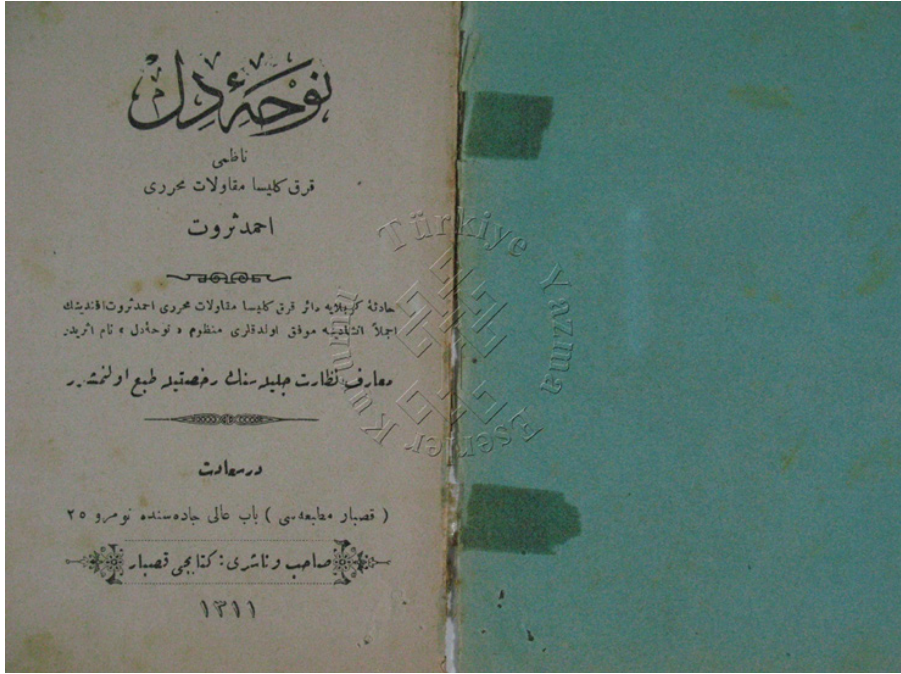 نوحۀ دل
ناظمی
قرق کلیسا مقاولات محرری
احمد ثروت
حادثۀ کربلایه دائر قرق کلیسا مقاولات محرری احمد ثروت افندینك
اجملاً انشادینه موفق اولدقلری منظوم « نوحۀ دل » نام اثریدر
معارف نظارت جلیله سنك رخصتیله طبع اولنمشدر
در سعادت
( قصبار مطبعه سی ) باب عالی جاده سنده نومرو ٢٥
صاحب و ناشری : کتابجی قصبار
١٣١١
Türkiye Yazma Eserler Kurumu